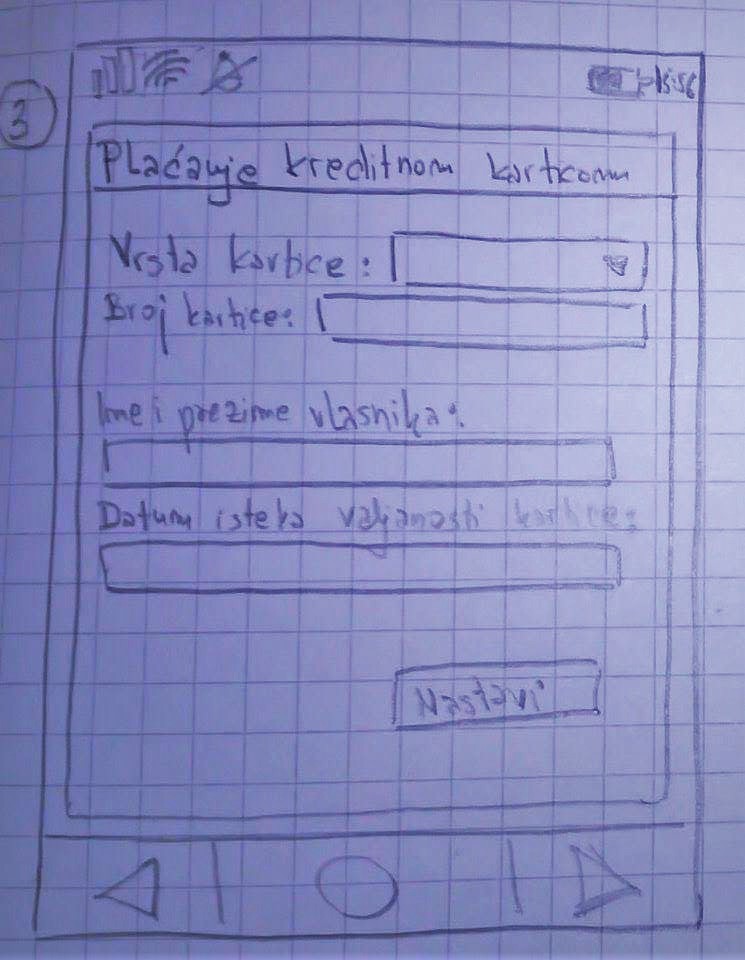 15:56
3
Plaćanje kreditnom karticom
Vrsta kartice:
Broj kartice:
Ime i prezime vlasnika:
Datum isteka valjanosti kartice:
Nastavi